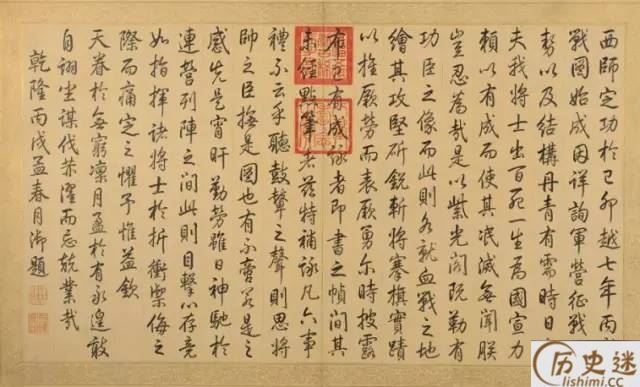 西師定功於己卯越七年丙
戰圖始成因詳詢軍營征戰
勢以及結構丹青有需時日
夫我將士出百死一生為國宣力
賴以有成而使其泯滅無聞朕
豈忍為哉是以紫光閣既勒有
功臣之像而此則各就血戰之地
繪其攻堅斫銳斬將搴旗實蹟
以推厥勞而表厥勇爾時披露
布已有成詠者即書之幀間其
未經點筆者茲特補詠凡六事
禮不云乎聽鼓鼙之聲則思將
帥之臣撫是圖也有不啻若是之
感先是宵旰勤勞雖日神馳於
連營列陣之間此則目擊心存竟
如指揮諸將士於折衝禦侮之
際而痛定之懼予惟益欽
天眷於無窮凜月盈於有永遑敢
自詡坐謀伐忝濯而忘兢業哉
乾隆丙戌孟春月御題
历史迷
lishimi.cc